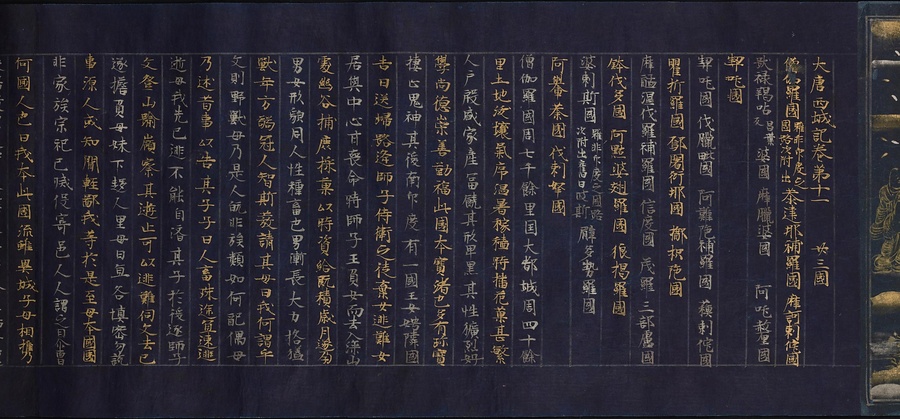 大唐西域記卷第十一 廿三國
僧伽羅國 雖非印度之國路次附出 荼達那補羅國 摩訶剌侘國
跋祿羯呫婆國 摩臘婆國 阿吒釐國
契吒國 伐臘毗國 阿難陀補羅國 蘇剌侘國
瞿折羅國 鄔闍衍那國 擲枳陀國
摩醯濕伐羅補羅國 信度國 茂羅三部盧國
鉢伐多國 阿點婆翅羅國 狼揭羅國
波剌斯國 雖非印度之國路次附出 臂多勢羅國
阿軬荼國 伐剌拏國
僧伽羅國周七千餘里國大都城周四十餘
里土地沃壤氣序溫暑稼穡時播花菓具繁
人戶殷盛家產富饒其形卑黑其性獷烈好
學尚德崇善勤福此國本寶渚也多有珍寶
棲止鬼神其後南印度有一國王女娉隣國
吉日送歸路逢師子侍衛之徒棄女逃難女
居輿中心甘喪命時師子王負女而去入深山
處幽谷捕鹿採菓以時資給既積歲月遂孕
男女形貌同人性種畜也男漸長大力格猛
獸年方弱冠人智斯發請其母曰我何謂乎
父則野獸母乃是人既非族類如何配偶母
乃述昔事以告其子子曰人畜殊途宜速逃
逝母曰我先已逃不能自濟其子於後逐師子
父登山踰嶺察其遊止可以逃難伺父去已
遂擔負母妹下趨人里母曰宜各慎密勿說
事源人或知聞輕鄙我等於是至母本國國
非家族宗祀已滅投寄邑人人謂之曰尒曹
何國人也曰我本此國流離異域子母相携